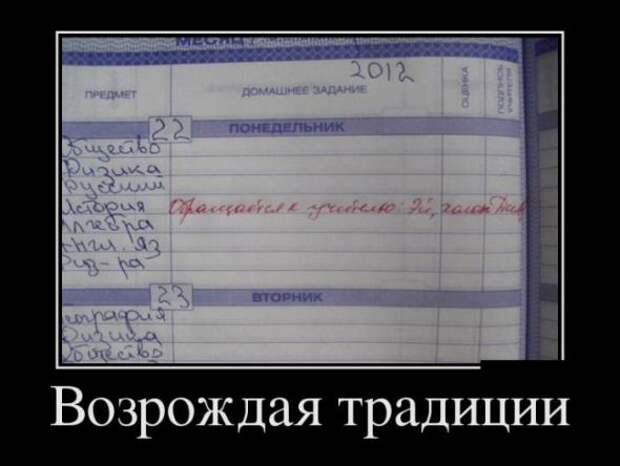 МЕСЯЦ
2012
ПРЕДМЕТ
ДОМАШНЕЕ ЗАДАНИЕ
ОЦЕНКА
ПОДПИСЬ УЧИТЕЛЯ
22 ПОНЕДЕЛЬНИК
Общество
Физика
Русский
История Обращается к учителю: Эй, холоп
Алгебра
Англ. яз
Физ-ра
23 ВТОРНИК
География
Физика
Общество
Возрождая традиции